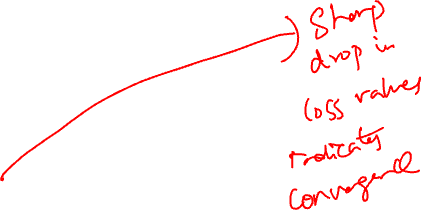 Sharp
drop in
loss values
indicates
convergence